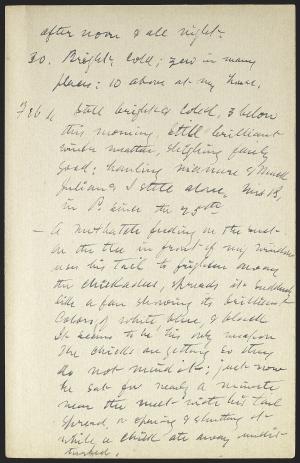 after noon & all night.
30. Bright & Cold; zero in many
places: 10 above at my house.
Feb 1 Still bright & Cold, 3 below
this morning. Still brilliant
winter weather, sleighing fairly
good; hauling manure & muck
Julian & I still alone, Mrs B,
in P. since the 25th
— A nuthatch feeding on the suet
on the tree in front of my window
uses his tail to frighten away
the chickadees, spreads it suddenly
like a fan showing its brilliant
colors, of white, blue, & black
It seems to be his only weapon
The chicks are getting so they
do not mind it; just now
he sat for nearly a minute
near the suet with his tail
spread, or opening & shutting it
while a chick ate away undis-
turbed.